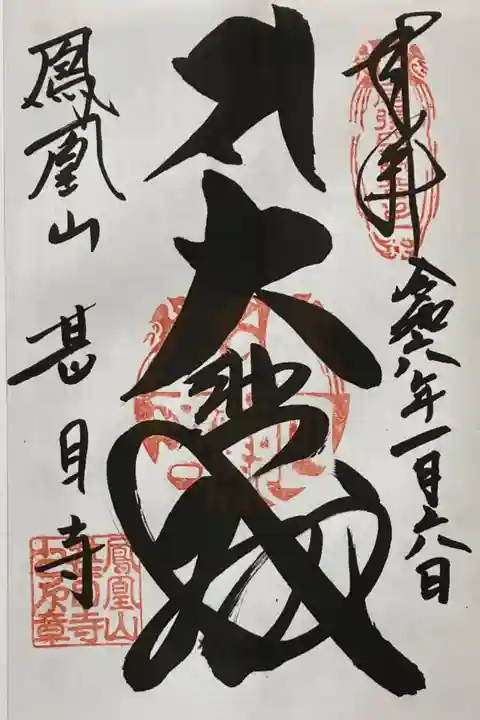 奉拝
令和六年一月六日
大悲殿
鳳凰山 甚目寺
鳳凰山
甚目寺